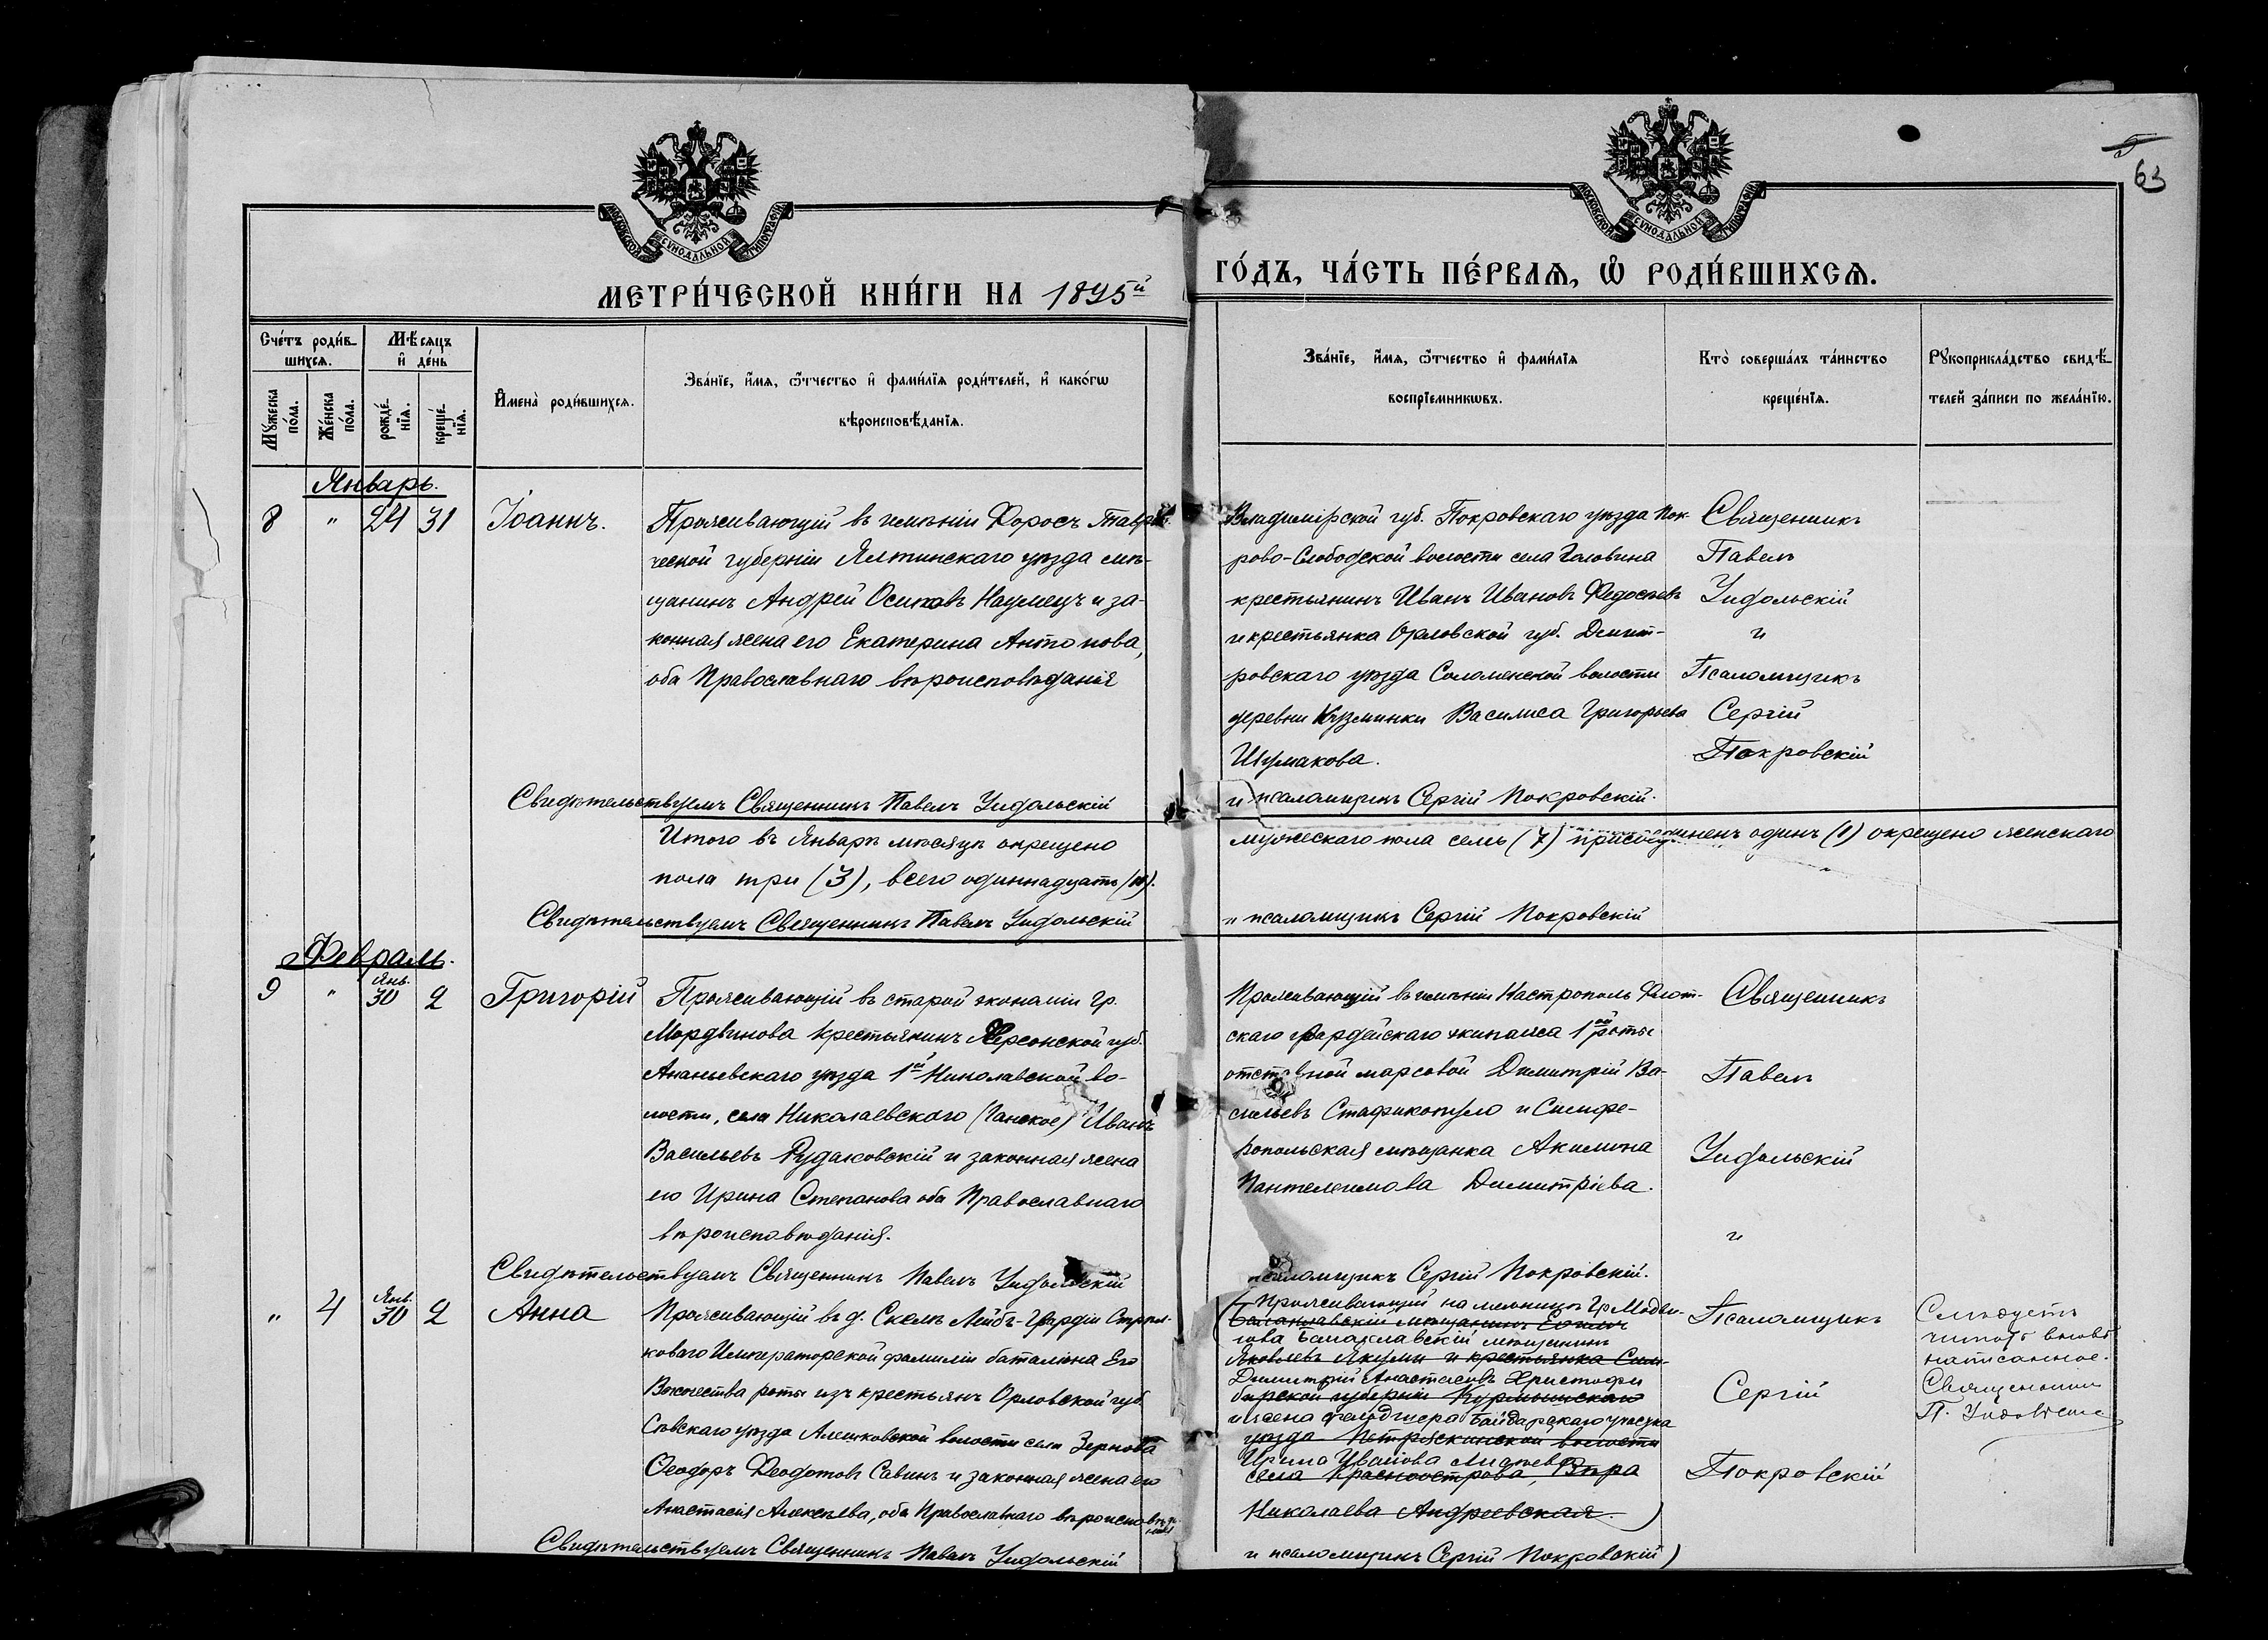 63
МОСКОВСКОЙ СѴНОДАЛЬНОЙ ТИПОГРАФІИ
МОСКОВСКОЙ СѴНОДАЛЬНОЙ ТИПОГРАФІИ
МЕТРИ́ЧЕСКОЙ КНИ́ГИ НА 1895й
ГО́ДЪ, ЧА́СТЬ ПЕ́РВАѦ, Ѡ РОДИ́ВШИХСѦ.
Сче́тъ роди́вшихсѧ.
Мꙋ́жеска по́ла.
Же́нска по́ла.
Мѣ́сѧцъ и де́нь
рожде́нїѧ.
креще́нїѧ.
Имена̀ роди́вшихсѧ.
Зва́нїе, и́мѧ, ѻ́тчество и фами́лїѧ роди́телей, и како́гѡ
вѣроисповѣ́данїѧ.
Зва́нїе, и́мѧ, ѻ́тчество и фами́лїѧ
воспрїе́мникѡвъ.
Кто̀ соверша́лъ та́инство
креще́нїѧ.
Рꙋкоприкла́дство свидѣ́телей за́писи по жела́нїю.
Январь.
8 " 24 31 Іоаннъ.
Проживающій въ имѣніи Форосъ Таври-
ческой губерніи Ялтинскаго уѣзда мѣ-
щанинъ Андрей Осиповъ Наумецъ и за-
конная жена его Екатерина Антонова,
оба Православнаго вѣроисповѣданія
Владимірской губ. Покровскаго уѣзда Пок-
рово-Слободской волости села Головина
крестьянинъ Иванъ Ивановъ Федосѣевъ
и крестьянка Орловской губ. Дмит-
ровскаго уѣзда Соломенской волости
деревни Кузминки Василиса Григорьева
Шумакова.
Священникъ
Павелъ
Ундольскій
и
Псаломщикъ
Сергій
Покровскій
Свидѣтельствуемъ Священникъ Павелъ Ундольскій
и псаломщикъ Сергій Покровскій.
Итого въ Январѣ мѣсяцѣ окрещено
мужескаго пола семь (7) присоединенъ одинъ (1) окрещено женскаго
пола три (3), всего одиннадцать (11).
Свидѣтельствуемъ Священникъ Павелъ Ундольскій
и псаломщикъ Сергій Покровскій
Февраль.
9 " Янв. 30 2 Григорій
Проживающій въ старой экономіи гр.
Мордвинова крестьянинъ Херсонской губ.
Ананьевскаго уѣзда 1й Николавской во-
лости, села Николаевскаго (Ганское) Иванъ
Васильевъ Рудаковскій и законная жена
его Ирина Степанова оба Православнаго
вѣроисповѣданія.
Проживающій въ имѣніи Кастрополь Флот-
скаго гвардейскаго экипажа 1ой роты
отставной марсовой Димитрій Ва-
сильевъ Стафикопуло и Симфе-
ропольская мѣщанка Акилина
Пантелеимова Димитріева.
Священникъ
Павелъ
Ундольскій
и
Свидѣтельствуемъ Священникъ Павелъ Ундольскій
псаломщикъ Сергій Покровскій.
" 4 Янв. 30 2 Анна
Проживающій въ д. Скеля Лейбъ-Гвардіи Стрѣл-
коваго Императорской фамиліи баталіона Его
Величества роты изъ крестьянъ Орловской губ.
Сѣвскаго уѣзда Алешковской волости села Зернова
Ѳеодоръ Ѳеодотовъ Савинъ и законная жена его
Анастасія Алексѣева, оба Православнаго вѣроисповѣд.
(Проживающій на имѣніи гр. Мордви-
Балаклавскій мѣщанинъ
нова Балаклавскій мѣщанинъ
Яковлевъ Якуми и крестьянка Сим-
Димитрій Анастасовъ Христофи
бирской губерніи Курмышскаго
и жена фельдшера Байдарскаго участка
уѣзда Петряскинской волости
Ирина Иванова
села Красноострова, Вѣра
Николаева Андреевская.)
Псаломщикъ
Сергій
Покровскій
Слѣдуетъ
читать вновь
написанное.
Священникъ
П. Ундольскій
Свидѣтельствуемъ Священникъ Павелъ Ундольскій
и псаломщикъ Сергій Покровскій)